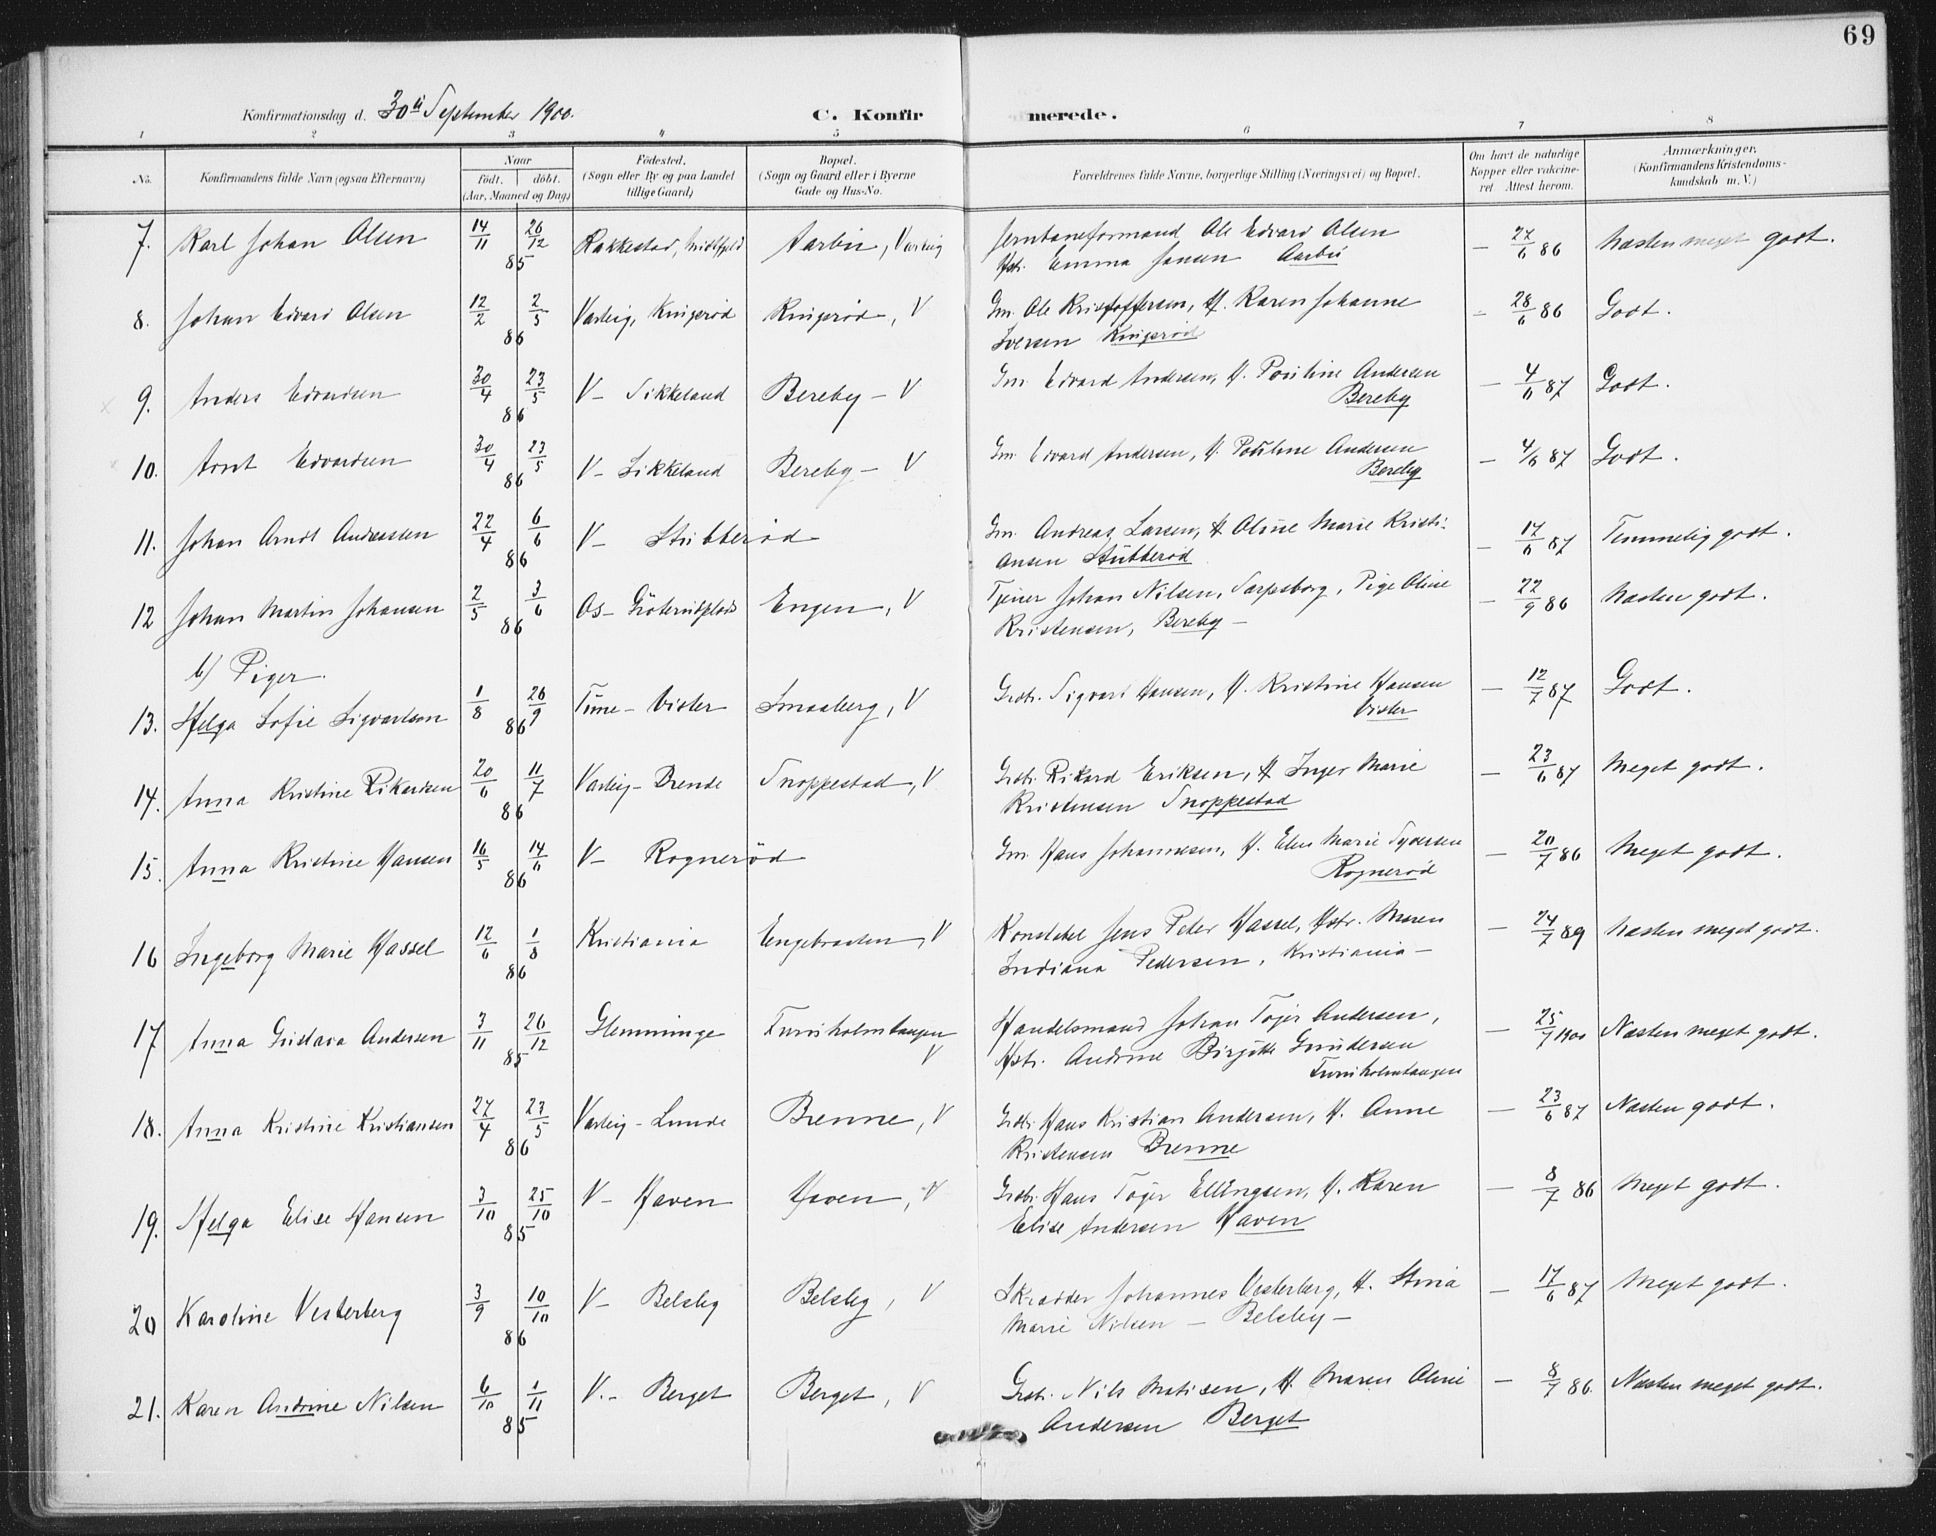 69
Konfirmationsdag d. 30te September 1900.
C. Konfir merede.
1 2 3 4 5 6 7 8
No. Konfirmandens fulde Navn (ogsaa Efternavn) Naar födt. döbt. (Aar, Maaned og Dag) Födested. (Sogn eller By og paa Landet tillige Gaard) Bopæl. (Sogn og Gaard eller i Byerne Gade og Hus-No. Forældrenes fulde Navne, borgerlige Stilling (Næringsvei) og Bopæl. Om havt de naturlige Kopper eller vakcineret. Attest herom. Anmærkninger. (Konfirmandens Kristendomskundskab m. V.)
7. Karl Johan Olsen 14/11 26/12 85 Rakkestad, Aarbu, Varteig Jernbaneformand Ole Edvard Olsen - 27/6 86 Næsten meget godt.
Hstr. Emma Jansen Aarbu
8. Johan Edvard Olsen 12/2 2/5 86 Varteig, Kingerød Kingerød, V Gm. Ole Kristoffersen, H. Karen Johanne - 28/6 86 Godt.
Iversen Kingerød
9. Anders Edvardsen 30/4 23/5 86 V - Sikkeland Bereby - V Gm. Edvard Andersen, H. Pouline Andersen - 4/6 87 Godt.
Bereby
10. Arnt Edvardsen 30/4 23/5 86 V - Sikkeland Bereby - V Gm. Edvard Andersen, H. Pouline Andersen - 4/6 87 Godt.
Bereby
11. Johan Arndt Andreassen 22/4 6/6 86 V - Stubberød Gm. Andreas Larsen, H Oline Marie Kristi- - 17/6 87 Temmelig godt.
ansen Stubberød
12 Johan Martin Johansen 2/5 3/6 86 Os - Engen, V Tjener Johan Nilsen, Sarpsborg, Pige Oline - 22/9 86 Næsten godt.
Kristensen, Bereby -
b) Piger.
13. Helga Sofie Sigvartsen 1/8 26/9 86 Tune - Visler Smaaberg, V Grdbr. Sigvart Hansen, H. Kristine Hansen - 12/7 87 Godt.
Visler
14. Anna Kristine Rikardsen 20/6 11/7 86 Varteig - Brende Snoppestad, V Grdbr. Rikard Eriksen, H Inger Marie - 23/6 87 Meget godt.
Kristensen Snoppestad
15. Anna Kristine Hansen 16/5 14/6 86 V - Rognerød Gm. Hans Johannesen, H. Elen Marie Syversen - 20/7 86 Meget godt.
Rognerød
16 Ingeborg Marie Hassel 12/6 1/8 86 Kristiania Engebraaten, V Konstabel Jens Peter Hassel, Hstr. Maren - 24/7 89 Næsten meget godt.
Indiana Pedersen, Kristiania -
17 Anna Gustava Andersen 3/11 26/12 85 Glemminge Furuholmtangen V Handelsmand Johan Töger Andersen, - 25/7 1900 Næsten meget godt.
Hstr. Andrine Birgitte Gundersen
Furuholmtangen
18. Anna Kristine Kristiansen 27/4 23/5 86 Varteig - Lunde Brenne, V Grdbr. Hans Kristian Andersen, H. Anne - 23/6 87 Næsten godt.
Kristensen Brenne
19. Helga Elise Hansen 3/10 25/10 85 V - Haven Haven, V Grdbr. Hans Töger Ellingsen, H. Karen - 8/7 86 Meget godt.
Elise Andersen Haven
20 Karoline Vesterberg 3/9 10/10 86 V - Belsby Belsby, V Skrædder Johannes Vesterberg, H. Stina - 17/6 87 Meget godt.
Marie Nilsen - Belsby -
21. Karen Andrine Nilsen 6/10 1/11 85 V. - Berget Berget, V Grdbr. Nils Matisen, H. Maren Oline - 8/7 86. Næsten meget godt.
Andersen Berget